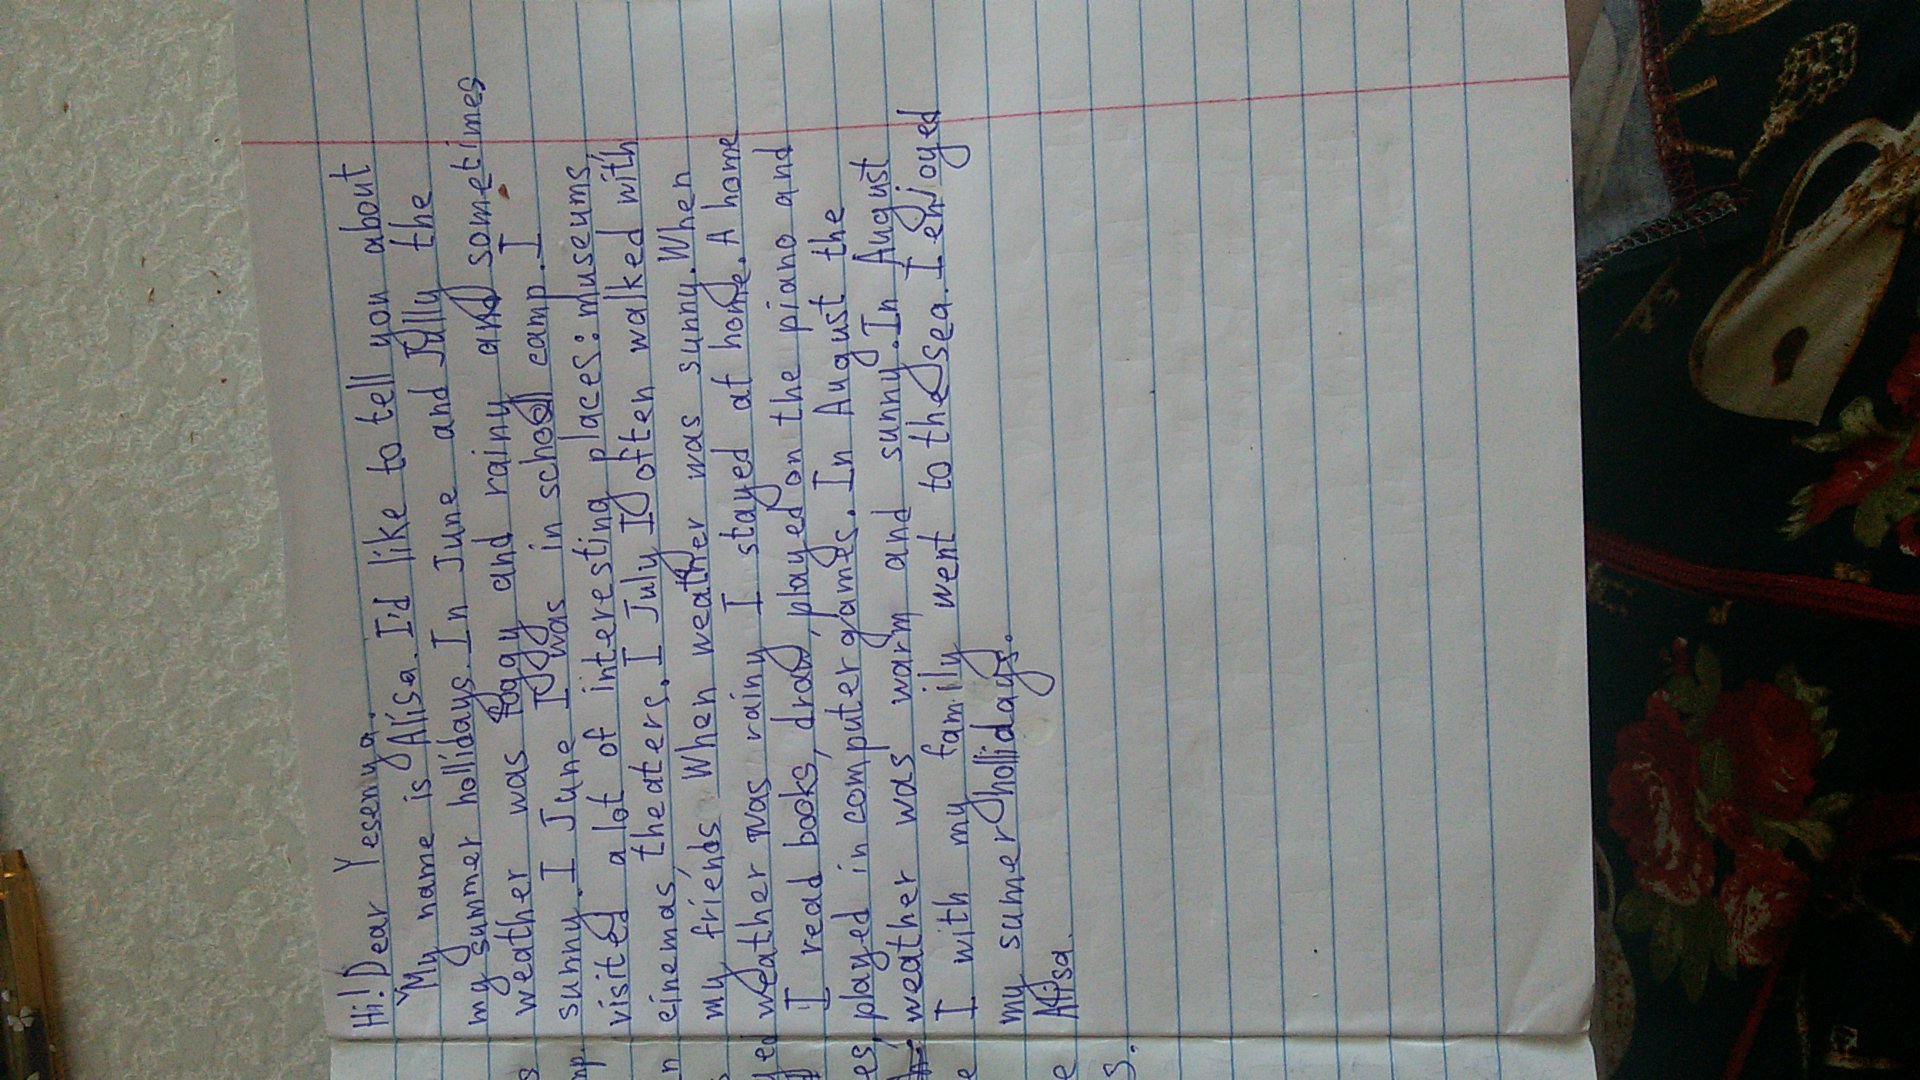 Hi! Dear Yesenya.
My name is Alisa. I'd like to tell you about
my summer hollidays. In June and Jully the
weather was foggy and rainy and sometimes
sunny. I June I was in school camp. I
visited a lot of interesting places: museums,
cinemas, theaters. I July I often walked with
my friends. When weather was sunny. When
weather was rainy I stayed at home. A home
I read books, draw, played on the piano and
played in computer games. In August the
weather was warm and sunny. In August
I with my family went to the sea. I enjoyed
my sumer hollidays.
Alisa.